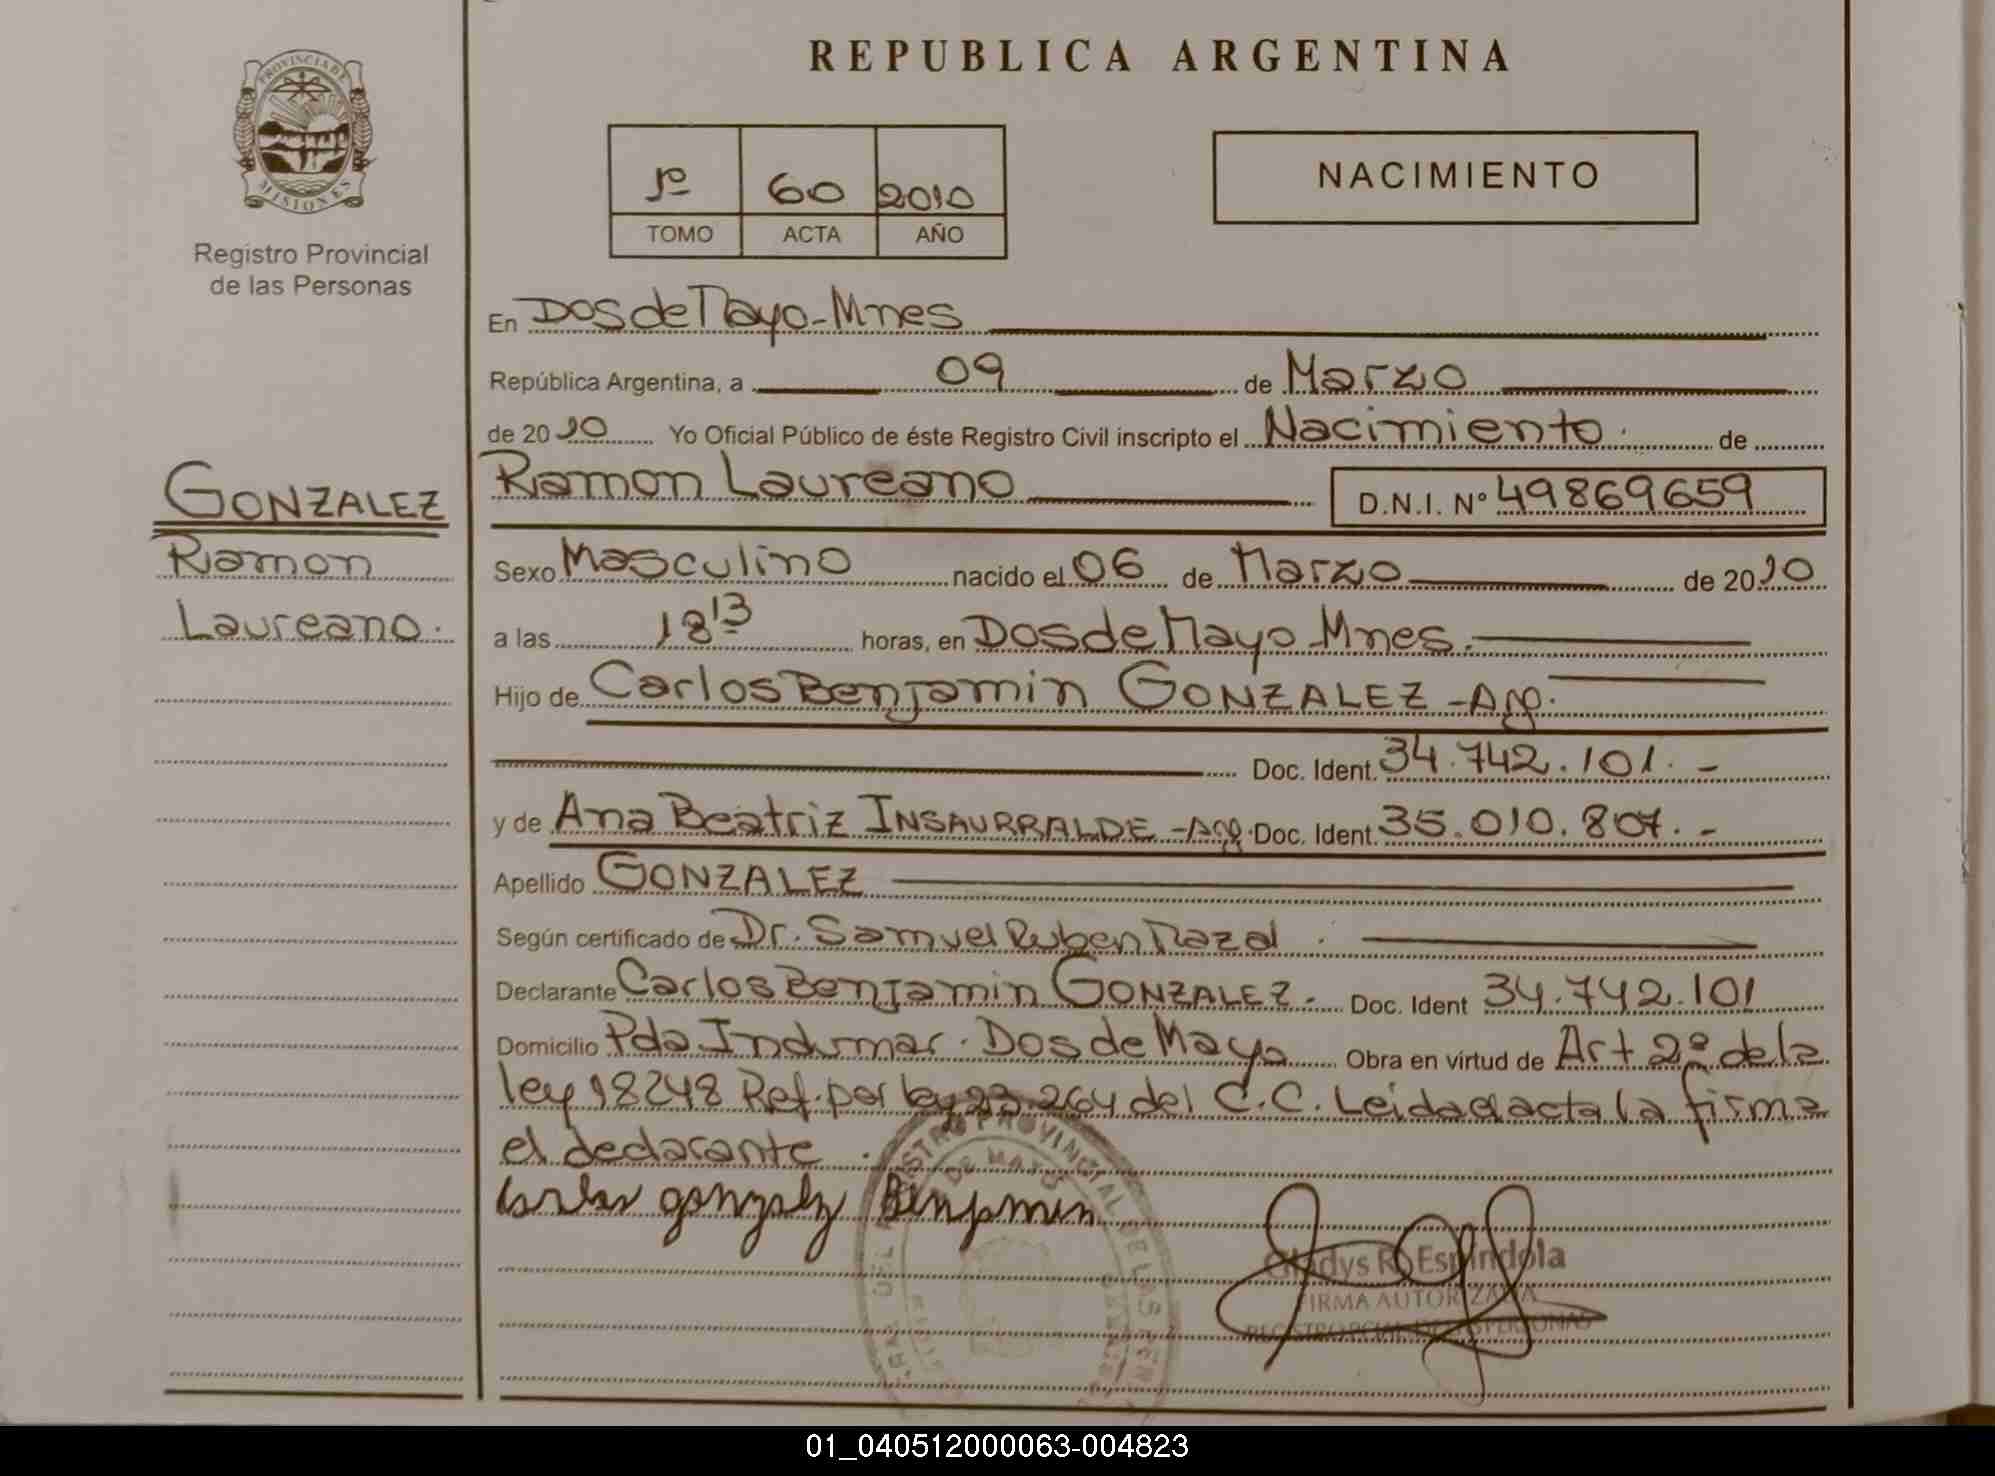 REPUBLICA ARGENTINA
PROVINCIA DE
MISIONES
Registro Provincial
de las Personas
1º 60 2010
TOMO ACTA AÑO
NACIMIENTO
En Dos de Mayo-Mnes
República Argentina, a 09 de Marzo
de 2010 Yo Oficial Público de éste Registro Civil inscripto el Nacimiento de
GONZALEZ
Ramon
Laureano.
Ramon Laureano D.N.I. Nº 49869659
Sexo Masculino nacido el 06 de Marzo de 2010
a las 18 13 horas, en Dos de Mayo-Mnes.
Hijo de Carlos Benjamin GONZALEZ -Arg.
Doc. Ident. 34.742.101.-
y de Ana Beatriz INSAURRALDE -Arg. Doc. Ident. 35.010.807.-
Apellido GONZALEZ
Según certificado de Dr. Samuel Ruben Mazal.
Declarante Carlos Benjamin GONZALEZ.- Doc. Ident 34.742.101
Domicilio Pda Indumar. Dos de Mayo Obra en virtud de Art 2º de la
ley 18248 Ref. por ley 23.264 del C.C. Leida el acta la firma
el declarante.
Carlos gonzalez Benjamin
REGISTRO PROVINCIAL DE LAS
DE MAYO
Gladys R. Espindola
FIRMA AUTORIZADA
REGISTRO PCIAL. DE LAS PERSONAS
01_040512000063-004823